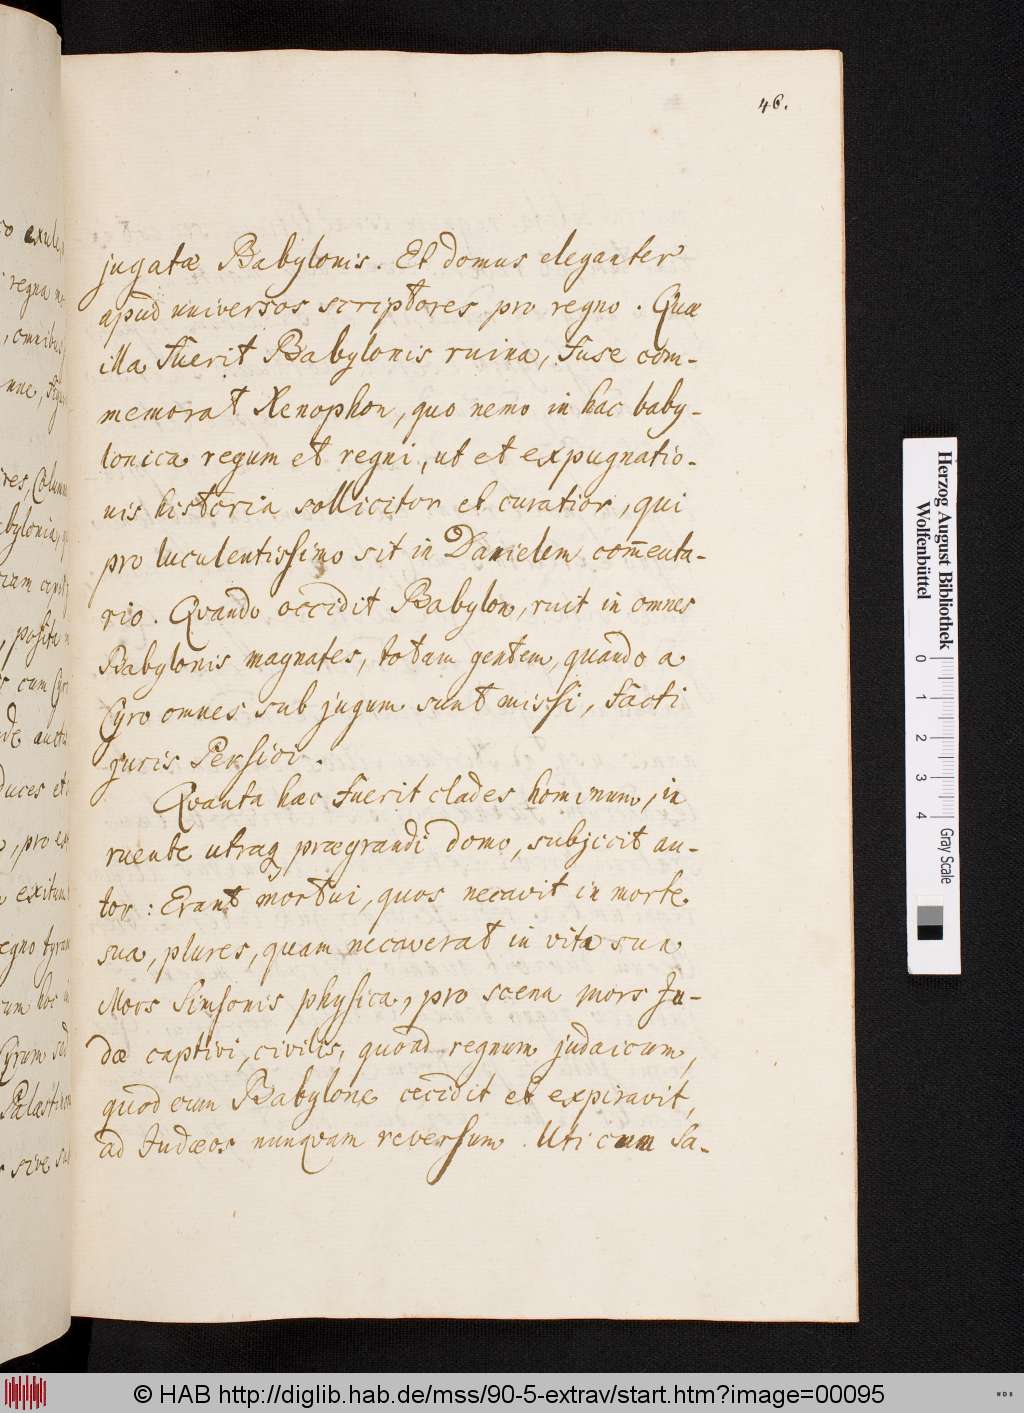 46.
jugatæ Babylonis. Et domus eleganter
apud universos scriptores pro regno. Quæ
illa fuerit Babylonis ruina, fuse com-
memorat Xenophon, quo nemo in hac baby-
lonica regum et regni, ut et expugnatio-
nis historia sollicitor et curatior, qui
pro luculentissimo sit in Danielem com̄enta-
rio. Qvando occidit Babylon, ruit in omnes
Babylonis magnates, totam gentem, quando a
Cyro omnes sub jugum sunt missi, facti
juris Persici.
Qvanta hæc fuerit clades hominum, in
ruente utraq prægrandi domo, subjicit au-
tor: Erant mortui, quos necavit in morte
sua, plures, quam necaverat in vita sua
Mors Simsonis physica, pro scena mors Ju-
dæ captivi, civilis, quoad regnum judaicum,
quod cum Babylone cecidit et expiravit,
ad Judæos nunqvam reversum. Uti cum Sa-
co exule
regna
, omnibus
nne,
res, Column
bylonia,
riam
, posita
s cum Cyri
de
duces et
, pro ex
exitum
egno tyran
um hoc
Cyrum
Palæstinam
sive
Herzog August Bibliothek
Wolfenbüttel
0 1 2 3 4
Gray Scale
© HAB http://diglib.hab.de/mss/90-5-extrav/start.htm?image=00095